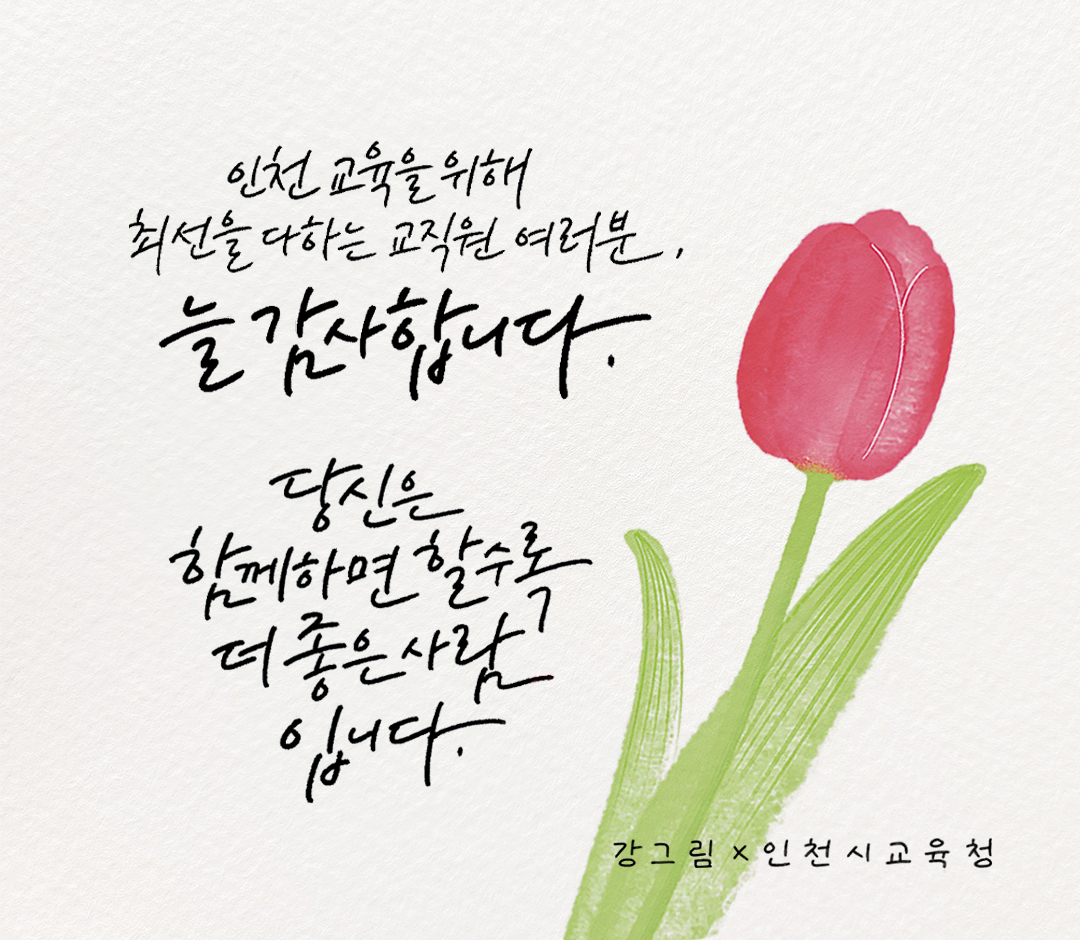 인천 교육을 위해
최선을 다하는 교직원 여러분,
늘 감사합니다.
당신은
함께하면 할수록
더 좋은 사람
입니다.
강그림 × 인천시교육청